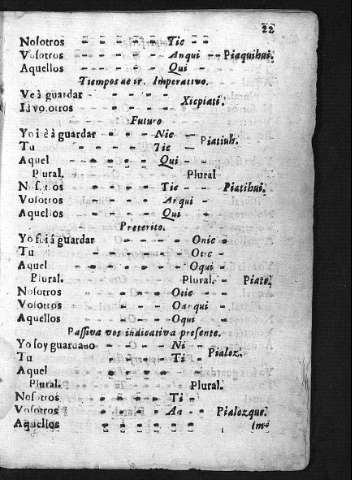 22
Nosotros - - - - - Tic - -
Vosotros - - - - - Anqui - - Piaquihui.
Aquellos - - - - - Qui - -
Tiempos de ir. Imperativo.
Ve à guardar - - - - - Xicpiati.
Id vosotros - - - - -
Futuro
Yo iè à guardar - - - Nic - - Piatiuh.
Tu - - - - - Tic - -
Aquel - - - - - Qui - -
Plural. Plural
Nosotros - - - - - Tic - - Piatihui.
Vosotros - - - - - Anqui - -
Aquellos - - - - - Qui
Preterito.
Yo fui á guardar - - - - Onic -
Tu - - - - - Otic -
Aquel - - - - - Oqui -
Plural. Plural. - Piato.
Nosotros - - - - Otic - -
Vosotros - - - - Oanqui - -
Aquellos - - - - Oqui - -
Passiva vos indicativa presente.
Yo soy guardado - - - - Ni - - Pialoz.
Tu - - - - - Ti
Aquel - - - - -
Plural. Plural.
Nosotros - - - - - Ti -
Vosotros - - - - - An - - Pialozque.
Aquellos - - - - -